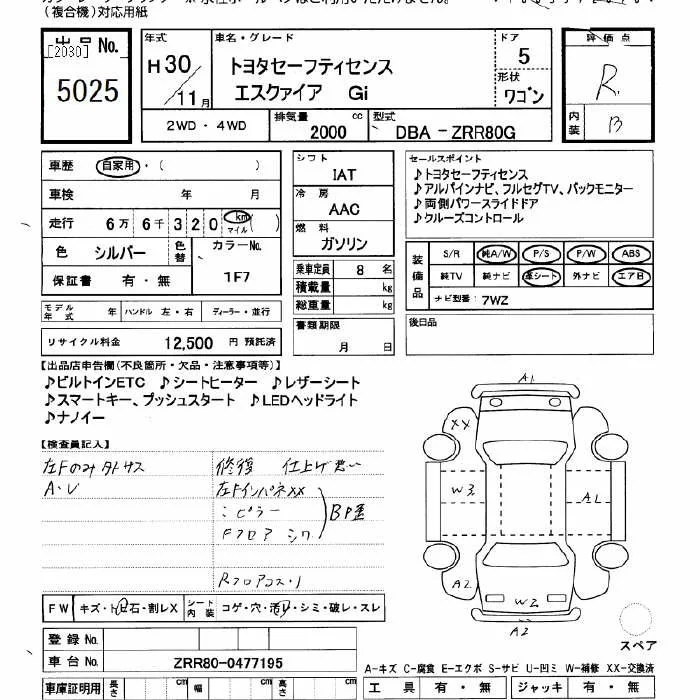 (複合機)対応用紙
出品No.
[2030]
5025
年式
H30/11月
車名・グレード
トヨタセーフティセンス
エスクァイア Gi
ドア
5
形状
ワゴン
評価点
R
内装
B
2WD・4WD
排気量
2000 cc
型式
DBA-ZRR80G
車歴 自家用・( )
車検 年 月
走行 6万 6千 3 2 0 km マイル ( )
色 シルバー
色替
カラーNo.
1F7
保証書 有・無
シフト
IAT
冷房
AAC
燃料
ガソリン
乗車定員 8 名
積載量 kg
総重量 kg
書類期限
月 日
セールスポイント
♪トヨタセーフティセンス
♪アルパインナビ、フルセグTV、バックモニター
♪両側パワースライドドア
♪クルーズコントロール
装備品
S/R 純A/W P/S P/W ABS
純TV 純ナビ 革シート 外ナビ エアB
ナビ型番: 7WZ
後日品
モデル年式 年 ハンドル 左・右 ディーラー・並行
リサイクル料金 12,500 円 預託済
【出品店申告欄(不良箇所・欠品・注意事項等)】
♪ビルトインETC ♪シートヒーター ♪レザーシート
♪スマートキー、プッシュスタート ♪LEDヘッドライト
♪ナノイー
【検査員記入】
A・U
修復 仕上げ悪い
左Fインパネ××
〃ピラー
Fフロア シワ
B P歪
A1
XX
W3
A1
A2
W2
A2
スペア
FW キズ・トビ石・割レX
シート内装 コゲ・穴・汚レ・シミ・破レ・スレ
登録No.
車台No. ZRR80-0477195
車庫証明用 長さ cm 幅 cm 高さ cm
A-キズ C-腐食 E-エクボ S-サビ U-凹ミ W-補修 XX-交換済
工具 有・無 ジャッキ 有・無